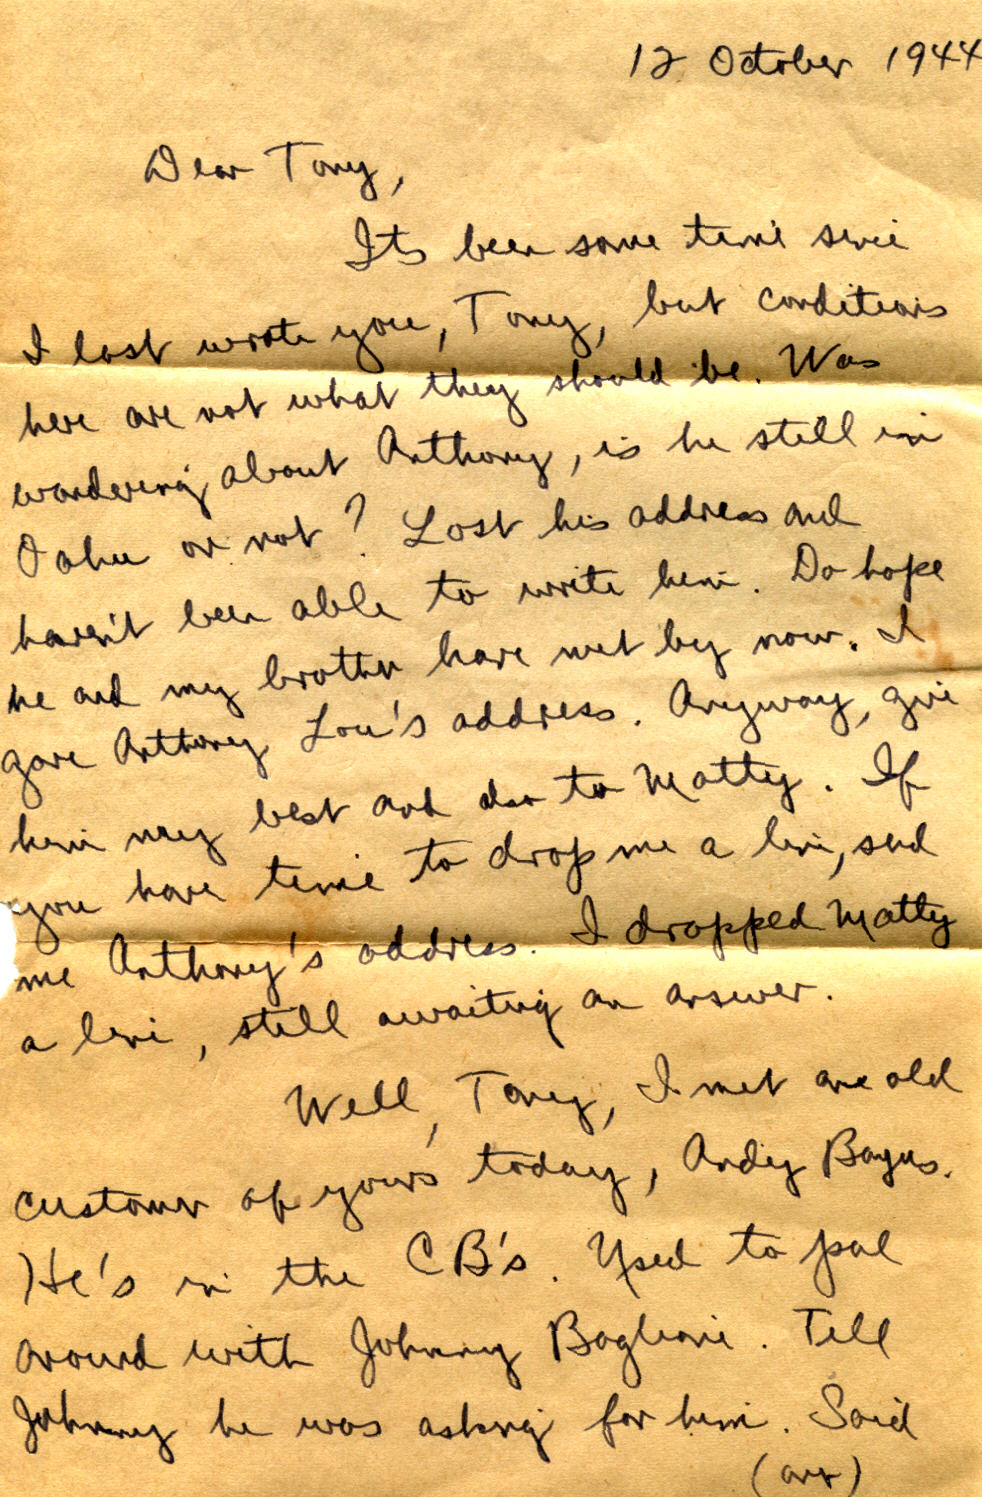 12 October 1944
Dear Tony,
Its been some time since
I last wrote you, Tony, but conditions
here are not what they should be. Was
wondering about Anthony, is he still in
Oahu or not? Lost his address and
haven't been able to write him. Do hope
he and my brother have met by now. I
gave Anthony Lou's address. Anyway, give
him my best and also to Matty. If
you have time to drop me a line, send
me Anthony's address. I dropped Matty
a line, still awaiting an answer.
Well, Tony, I met one old
customer of yours today, Andy
He's in the CB's. Used to pal
around with Johnny Baglioni. Tell
Johnny he was asking for him. Said
(over)